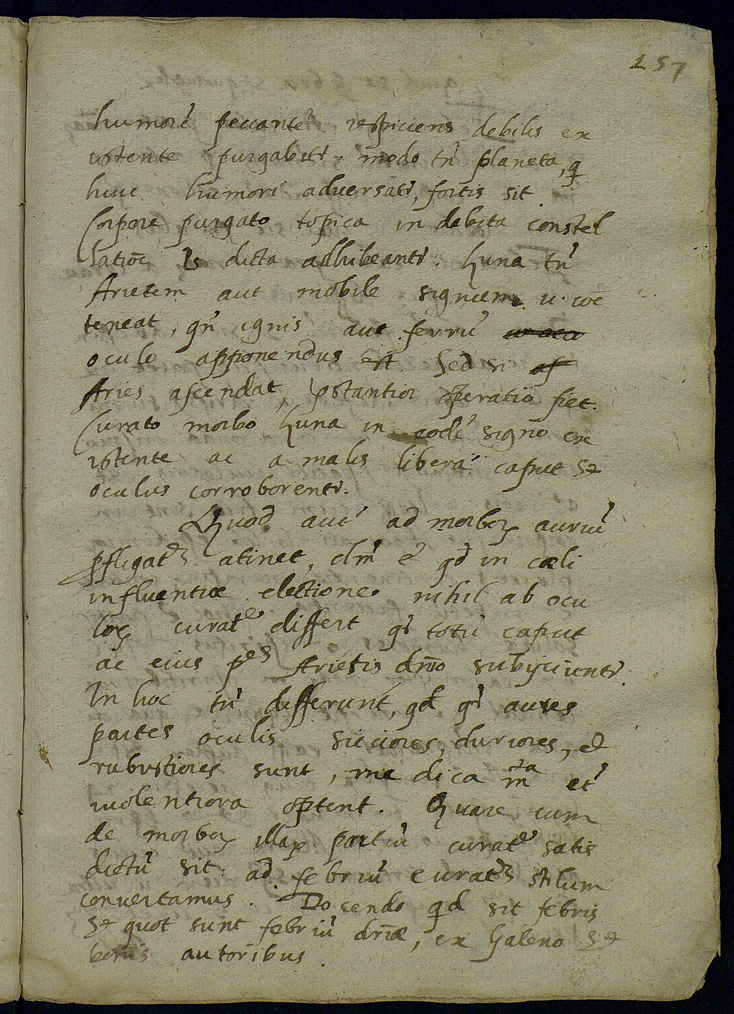 257
humorē peccantē respiciens debilis ex
istente purgabitr. modo tn̄ planeta, q̄
huic humori adversatr, fortis sit
Corpore purgato topica in debita constel
latioē dicta adhibeantr. Luna tn̄
Arietem aut mobile signum
teneat, qn̄ ignis aut ferrū
oculo apponendus est. Sed si
Aries ascendat, pstantior operatio fiet.
Curato morbo Luna in eodē signo ex
istente ac a malis libera caput et
oculus corroborentr.
Quod autē ad morbos auriū
attinet, in cæli
influentiæ electione nihil ab ocu
lorum curatōe differt qa totū caput
ac eius ptes Arietis dnīo subijciuntr.
In hoc tn̄ differunt, qd qa aures
partes oculis sicciores, duriores, et
rubustiores sunt, me dica mīta et
violentiora optent. Quare cum
de morbos illar partiū curatōe satis
dictū sit. ad febriū curatōs stilum
convertamus. Docendo qd sit febris
et quot sunt febriū driæ, ex Galeno et
autoribus.